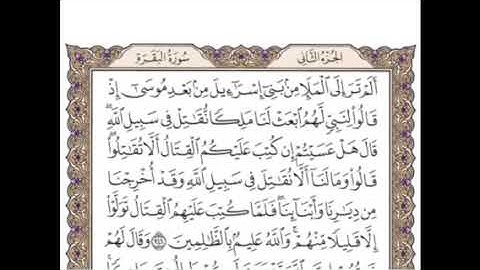 الجزء الثاني
سورة البقرة
ألم تر إلى الملإ من بني إسرائيل من بعد موسى إذ
قالوا لنبي لهم ابعث لنا ملكا نقاتل في سبيل الله
قال هل عسيتم إن كتب عليكم القتال ألا تقاتلوا
قالوا وما لنا ألا نقاتل في سبيل الله وقد أخرجنا
من ديارنا وأبنائنا فلما كتب عليهم القتال تولوا
إلا قليلا منهم والله عليم بالظالمين ٢٤٦ وقال لهم